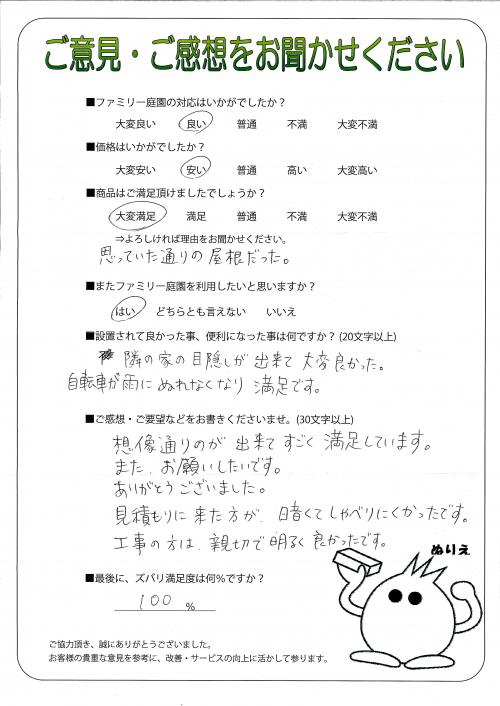 ご意見・ご感想をお聞かせください
■ファミリー庭園の対応はいかがでしたか？
大変良い 良い 普通 不満 大変不満
■価格はいかがでしたか？
大変安い 安い 普通 高い 大変高い
■商品はご満足頂けましたでしょうか？
大変満足 満足 普通 不満 大変不満
⇒よろしければ理由をお聞かせください。
思っていた通りの屋根だった。
■またファミリー庭園を利用したいと思いますか？
はい どちらとも言えない いいえ
■設置されて良かった事、便利になった事は何ですか？(20文字以上)
隣の家の目隠しが出来て大変良かった。
自転車が雨にぬれなくなり満足です。
■ご感想・ご要望などをお書きくださいませ。(30文字以上)
想像通りのが出来てすごく満足しています。
また、お願いしたいです。
ありがとうございました。
見積もりに来た方が、暗くてしゃべりにくかったです。
工事の方は、親切で明るく良かったです。
ぬりえ
■最後に、ズバリ満足度は何％ですか？
100 ％
ご協力頂き、誠にありがとうございました。
お客様の貴重な意見を参考に、改善・サービスの向上に活かして参ります。